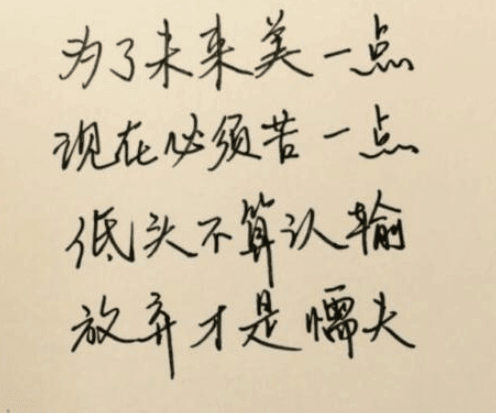 为了未来美一点
现在必须苦一点
低头不算认输
放弃才是懦夫